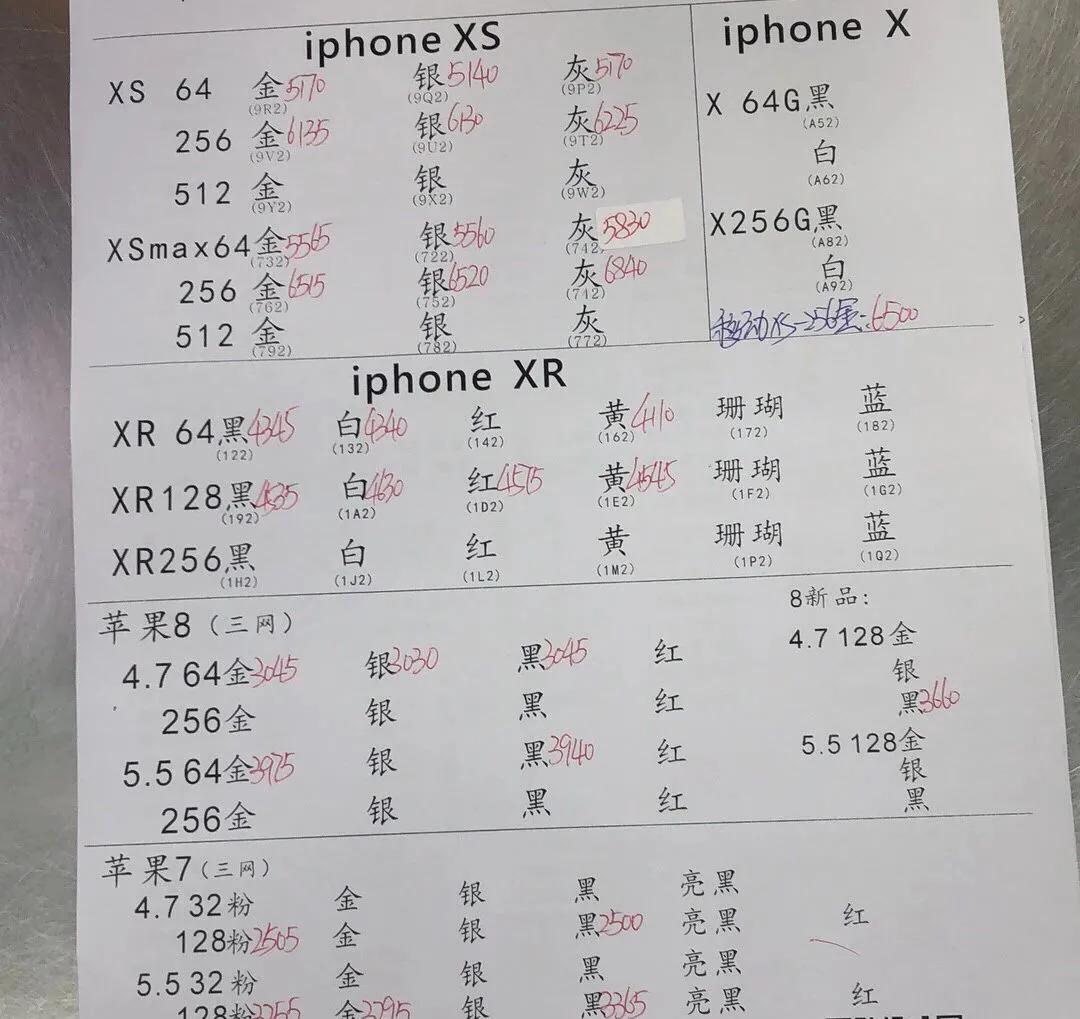 iphone XS
XS 64 金5170 银5140 灰5170
(9R2) (9Q2) (9P2)
256 金6135 银6130 灰6225
(9V2) (9U2) (9T2)
512 金 银 灰
(9Y2) (9X2) (9W2)
XSmax64金5565 银5560 灰5830
(732) (722) (742)
256 金6515 银6520 灰6840
(762) (752) (742)
512 金 银 灰
(792) (782) (772)
iphone X
X 64G,黑
(A52)
白
(A62)
X256G,黑
(A82)
白
(A92)
移动XS-256金:6500
iphone XR
XR 64,黑4345 白4340 红 黄4110 珊瑚 蓝
(122) (132) (142) (162) (172) (182)
XR128,黑4535 白4630 红4575 黄4545 珊瑚 蓝
(192) (1A2) (1D2) (1E2) (1F2) (1G2)
XR256,黑 白 红 黄 珊瑚 蓝
(1H2) (1J2) (1L2) (1M2) (1P2) (1Q2)
苹果8(三网)
4.7 64金3045 银3030 黑3045 红
256金 银 黑 红
5.5 64金3975 银 黑3940 红
256金 银 黑 红
8新品:
4.7 128金
银
黑3660
5.5 128金
银
黑
苹果7(三网)
4.7 32粉 金 银 黑 亮黑
128粉2505 金 银 黑2500 亮黑 红
5.5 32粉 金 银 黑 亮黑
128粉3255 金3295 银 黑3365 亮黑 红